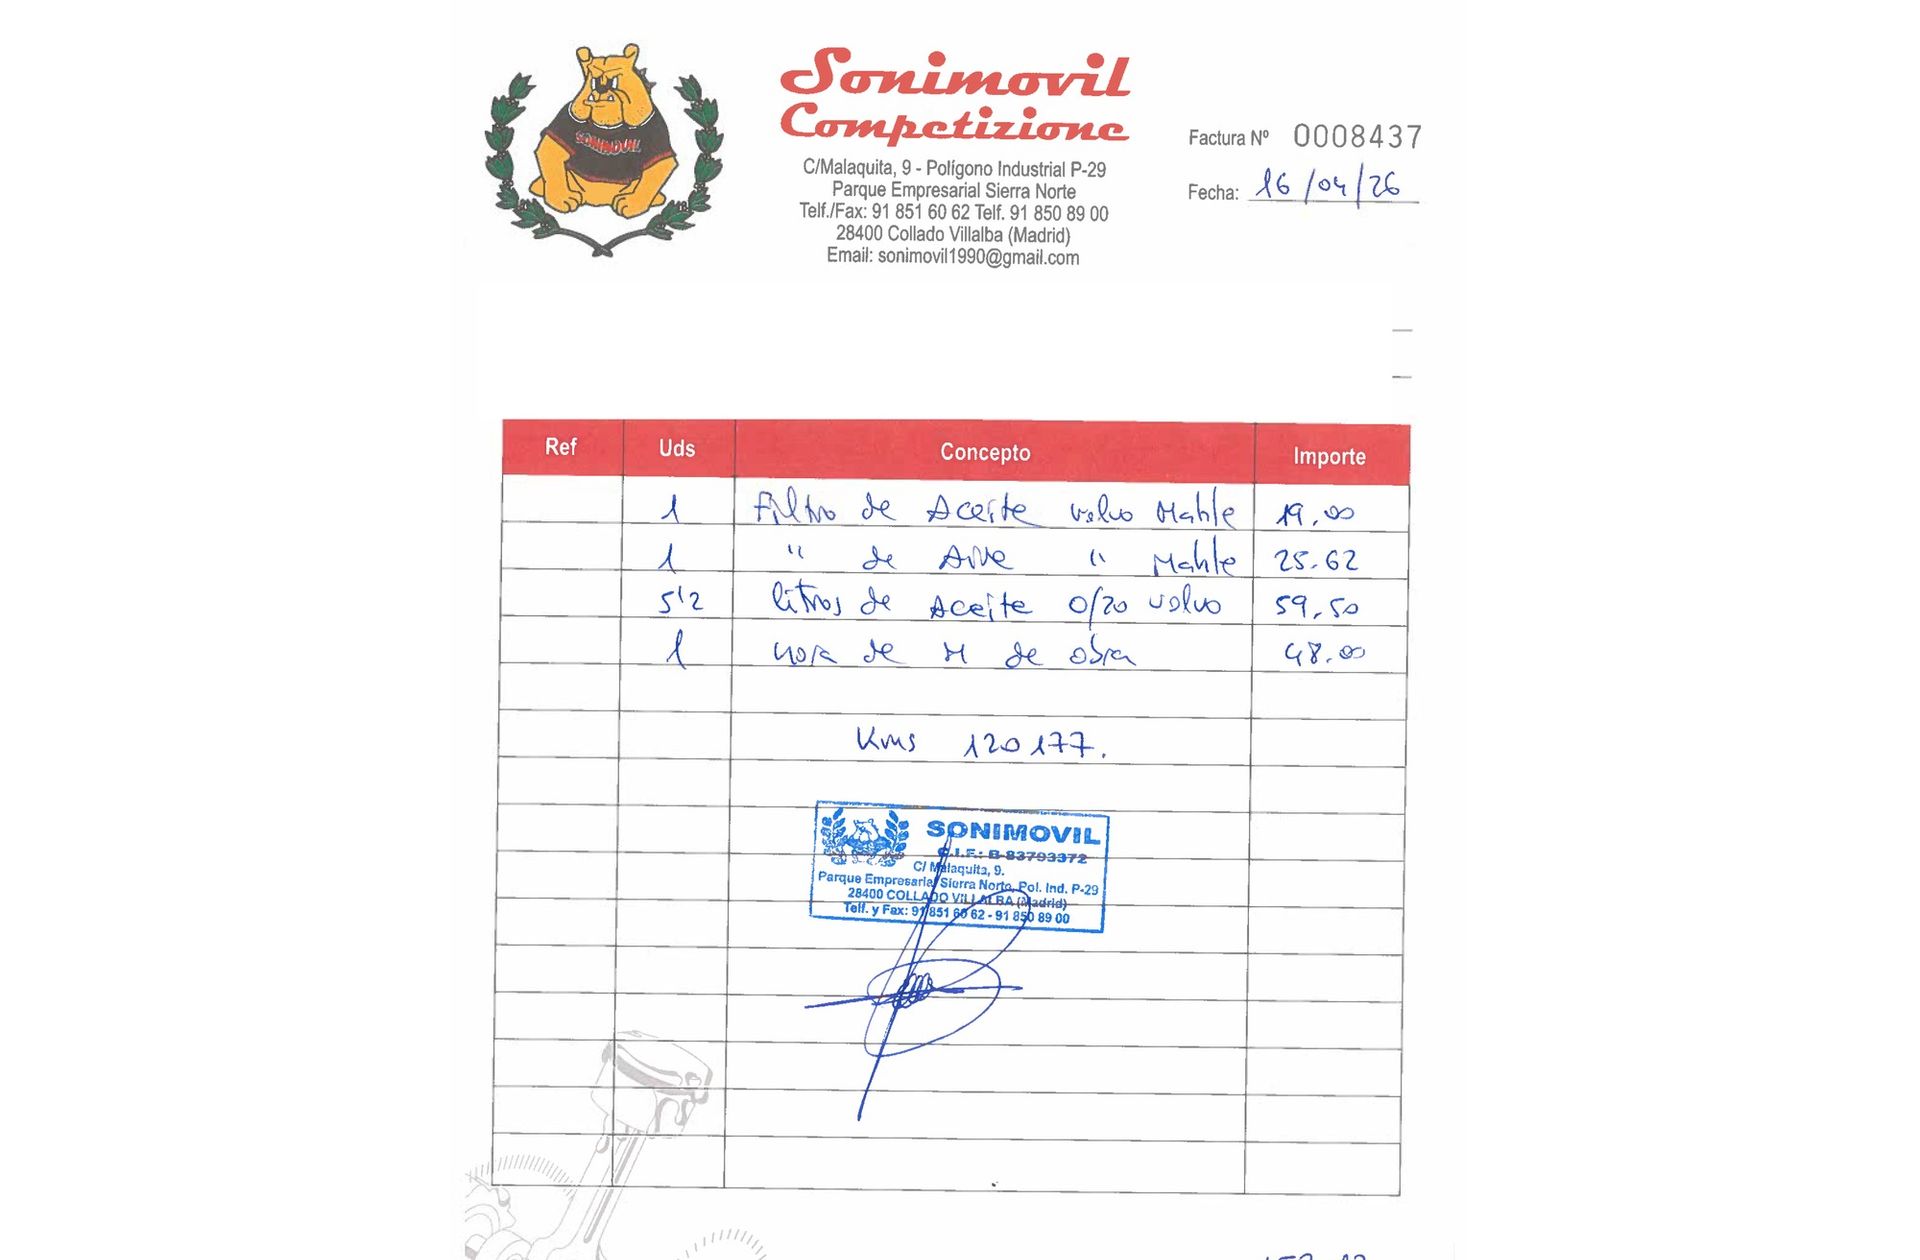 SONIMOVIL
Sonimovil
Competizione
C/Malaquita, 9 - Polígono Industrial P-29
Parque Empresarial Sierra Norte
Telf./Fax: 91 851 60 62 Telf. 91 850 89 00
28400 Collado Villalba (Madrid)
Email: sonimovil1990@gmail.com
Factura Nº 0008437
Fecha: 16/04/26
Ref Uds Concepto Importe
1 Filtro de Aceite volvo Mahle 19,00
1 " de Aire " Mahle 25.62
5'2 litros de Aceite 0/20 volvo 59,50
1 hora de M de obra 48.00
Kms 120177.
SONIMOVIL
C.I.F.: B-83793372
C/ Malaquita, 9.
Parque Empresarial Sierra Norte, Pol. Ind. P-29
28400 COLLADO VILLALBA (Madrid)
Telf. y Fax: 91 851 60 62 - 91 850 89 00